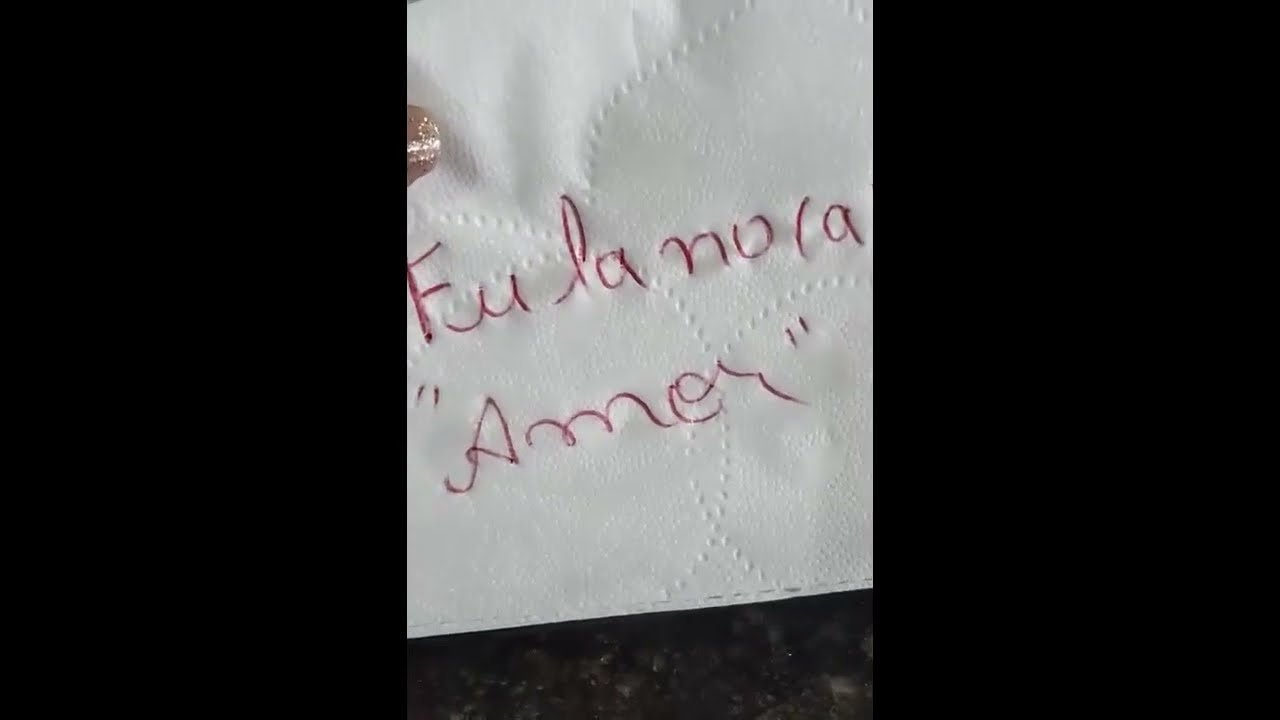 Fulano(a)
"Amor"